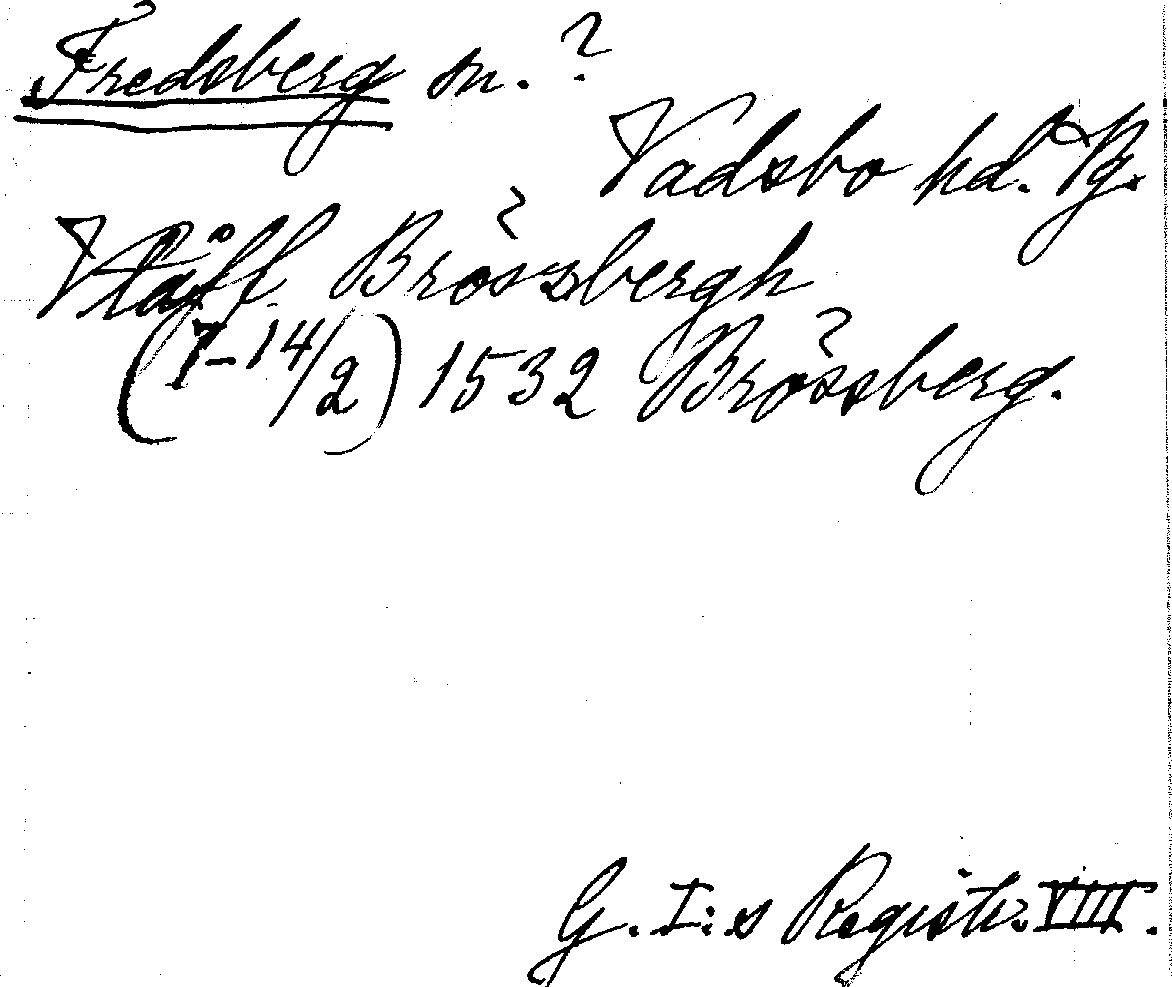 Fredsberg sn. ?
Vadsbo hd. Vg.
Brösszbergh
(7-14/2) 1532 Brössberg.
G. I:s Registr. VIII.